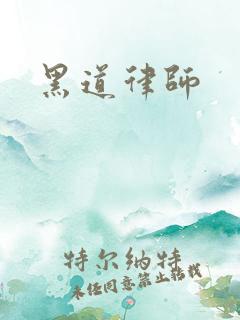 黑道律師
特尔纳特
未经同意禁止转载